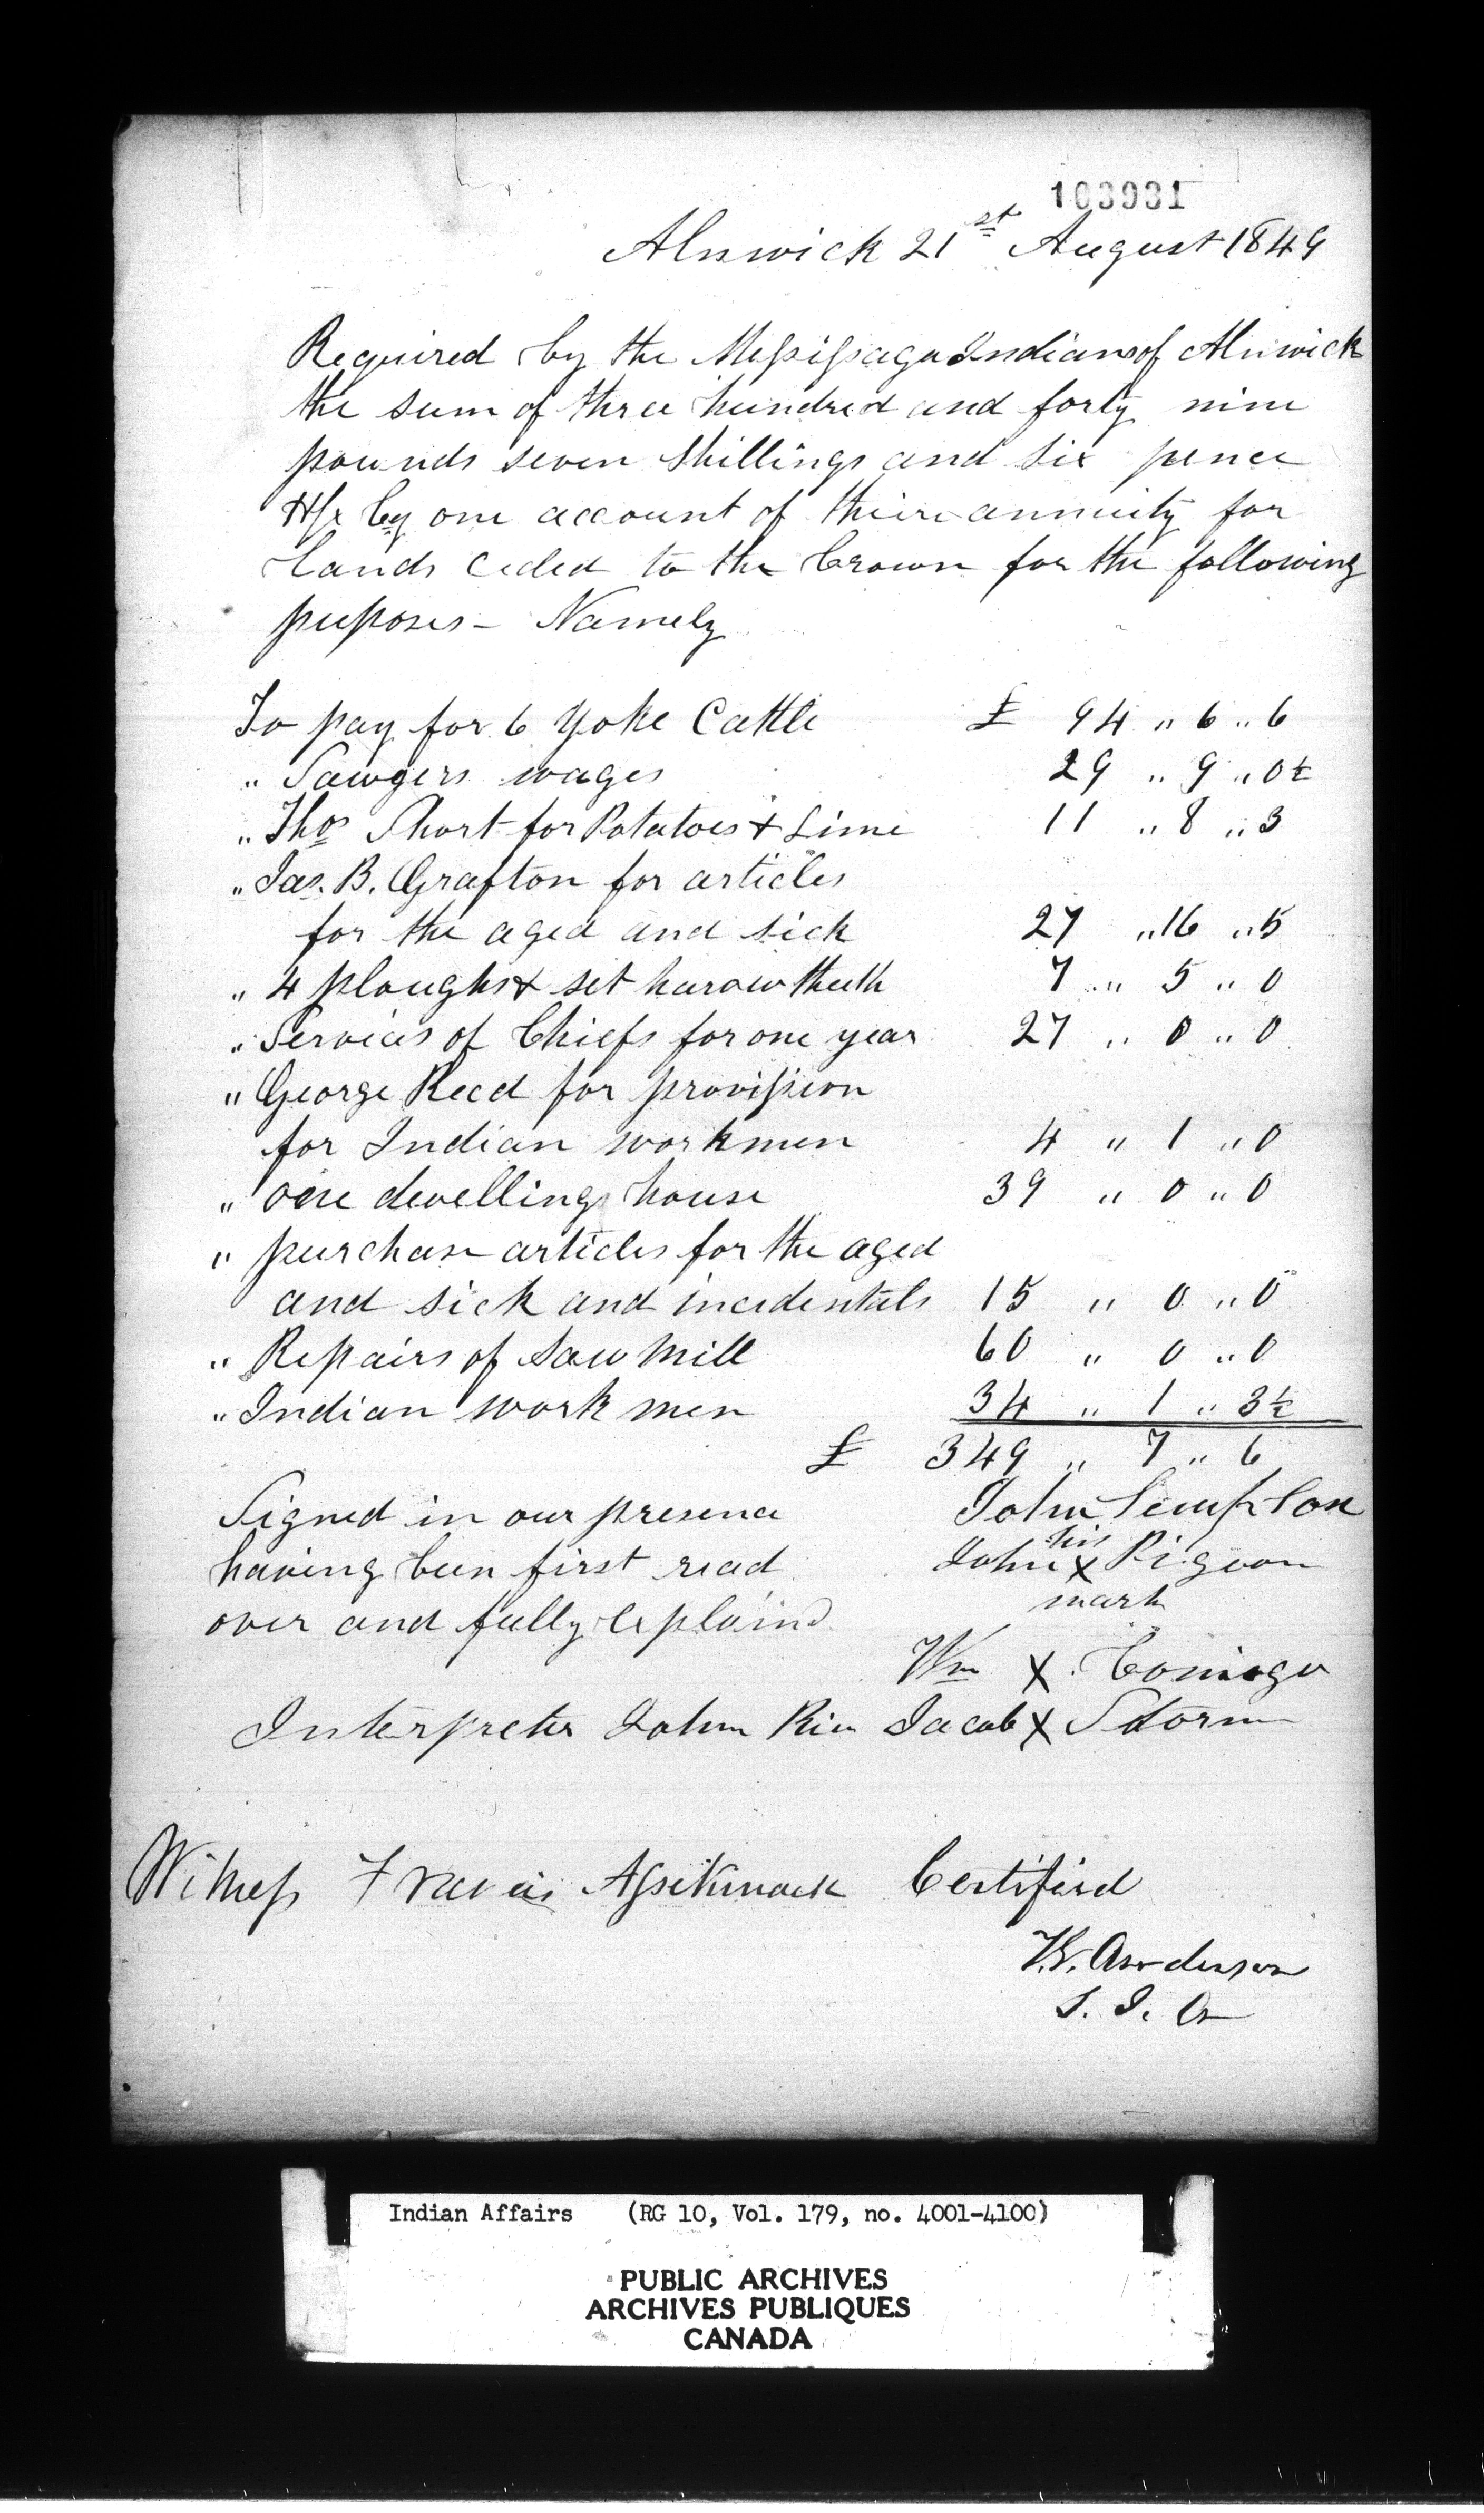 103931
Alnwick 21st August 1849
Required by the Mississaga Indians of Alnwick
the sum of three hundred and forty nine
pounds seven Shillings and six pence
Hfx Cy one account of their annuity for
Lands Ceded to the Crown for the following
puposes - Namely
To pay for 6 Yoke Cattle £ 94 " 6 " 6
" Sawyers wages 29 " 9 " 0½
" Thos Short for Potatoes & Lime 11 " 8 " 3
" Jas. B. Grafton for articles
for the aged and sick 27 " 16 " 5
" 4 ploughs & set harow theeth 7 " 5 " 0
" Services of Chiefs for one year 27 " 0 " 0
" George Read for provission
for Indian workmen 4 " 1 " 0
" one dwelling house 39 " 0 " 0
" purchase articles for the aged
and sick and incidentals 15 " 0 " 0
" Repairs of Saw Mill 60 " 0 " 0
" Indian work men 34 " 1 " 3½
£ 349 " 7 " 6
Signed in our presence John Simpson
having been first read John his X Pigeon
over and fully explaind mark
Wm X Comego
Interpreter John Rice Jacob X Storm
Witness Francis Assikinack Certified
T.G. Anderson
S. I. A
Indian Affairs (RG 10, Vol. 179, no. 4001-4100)
PUBLIC ARCHIVES
ARCHIVES PUBLIQUES
CANADA